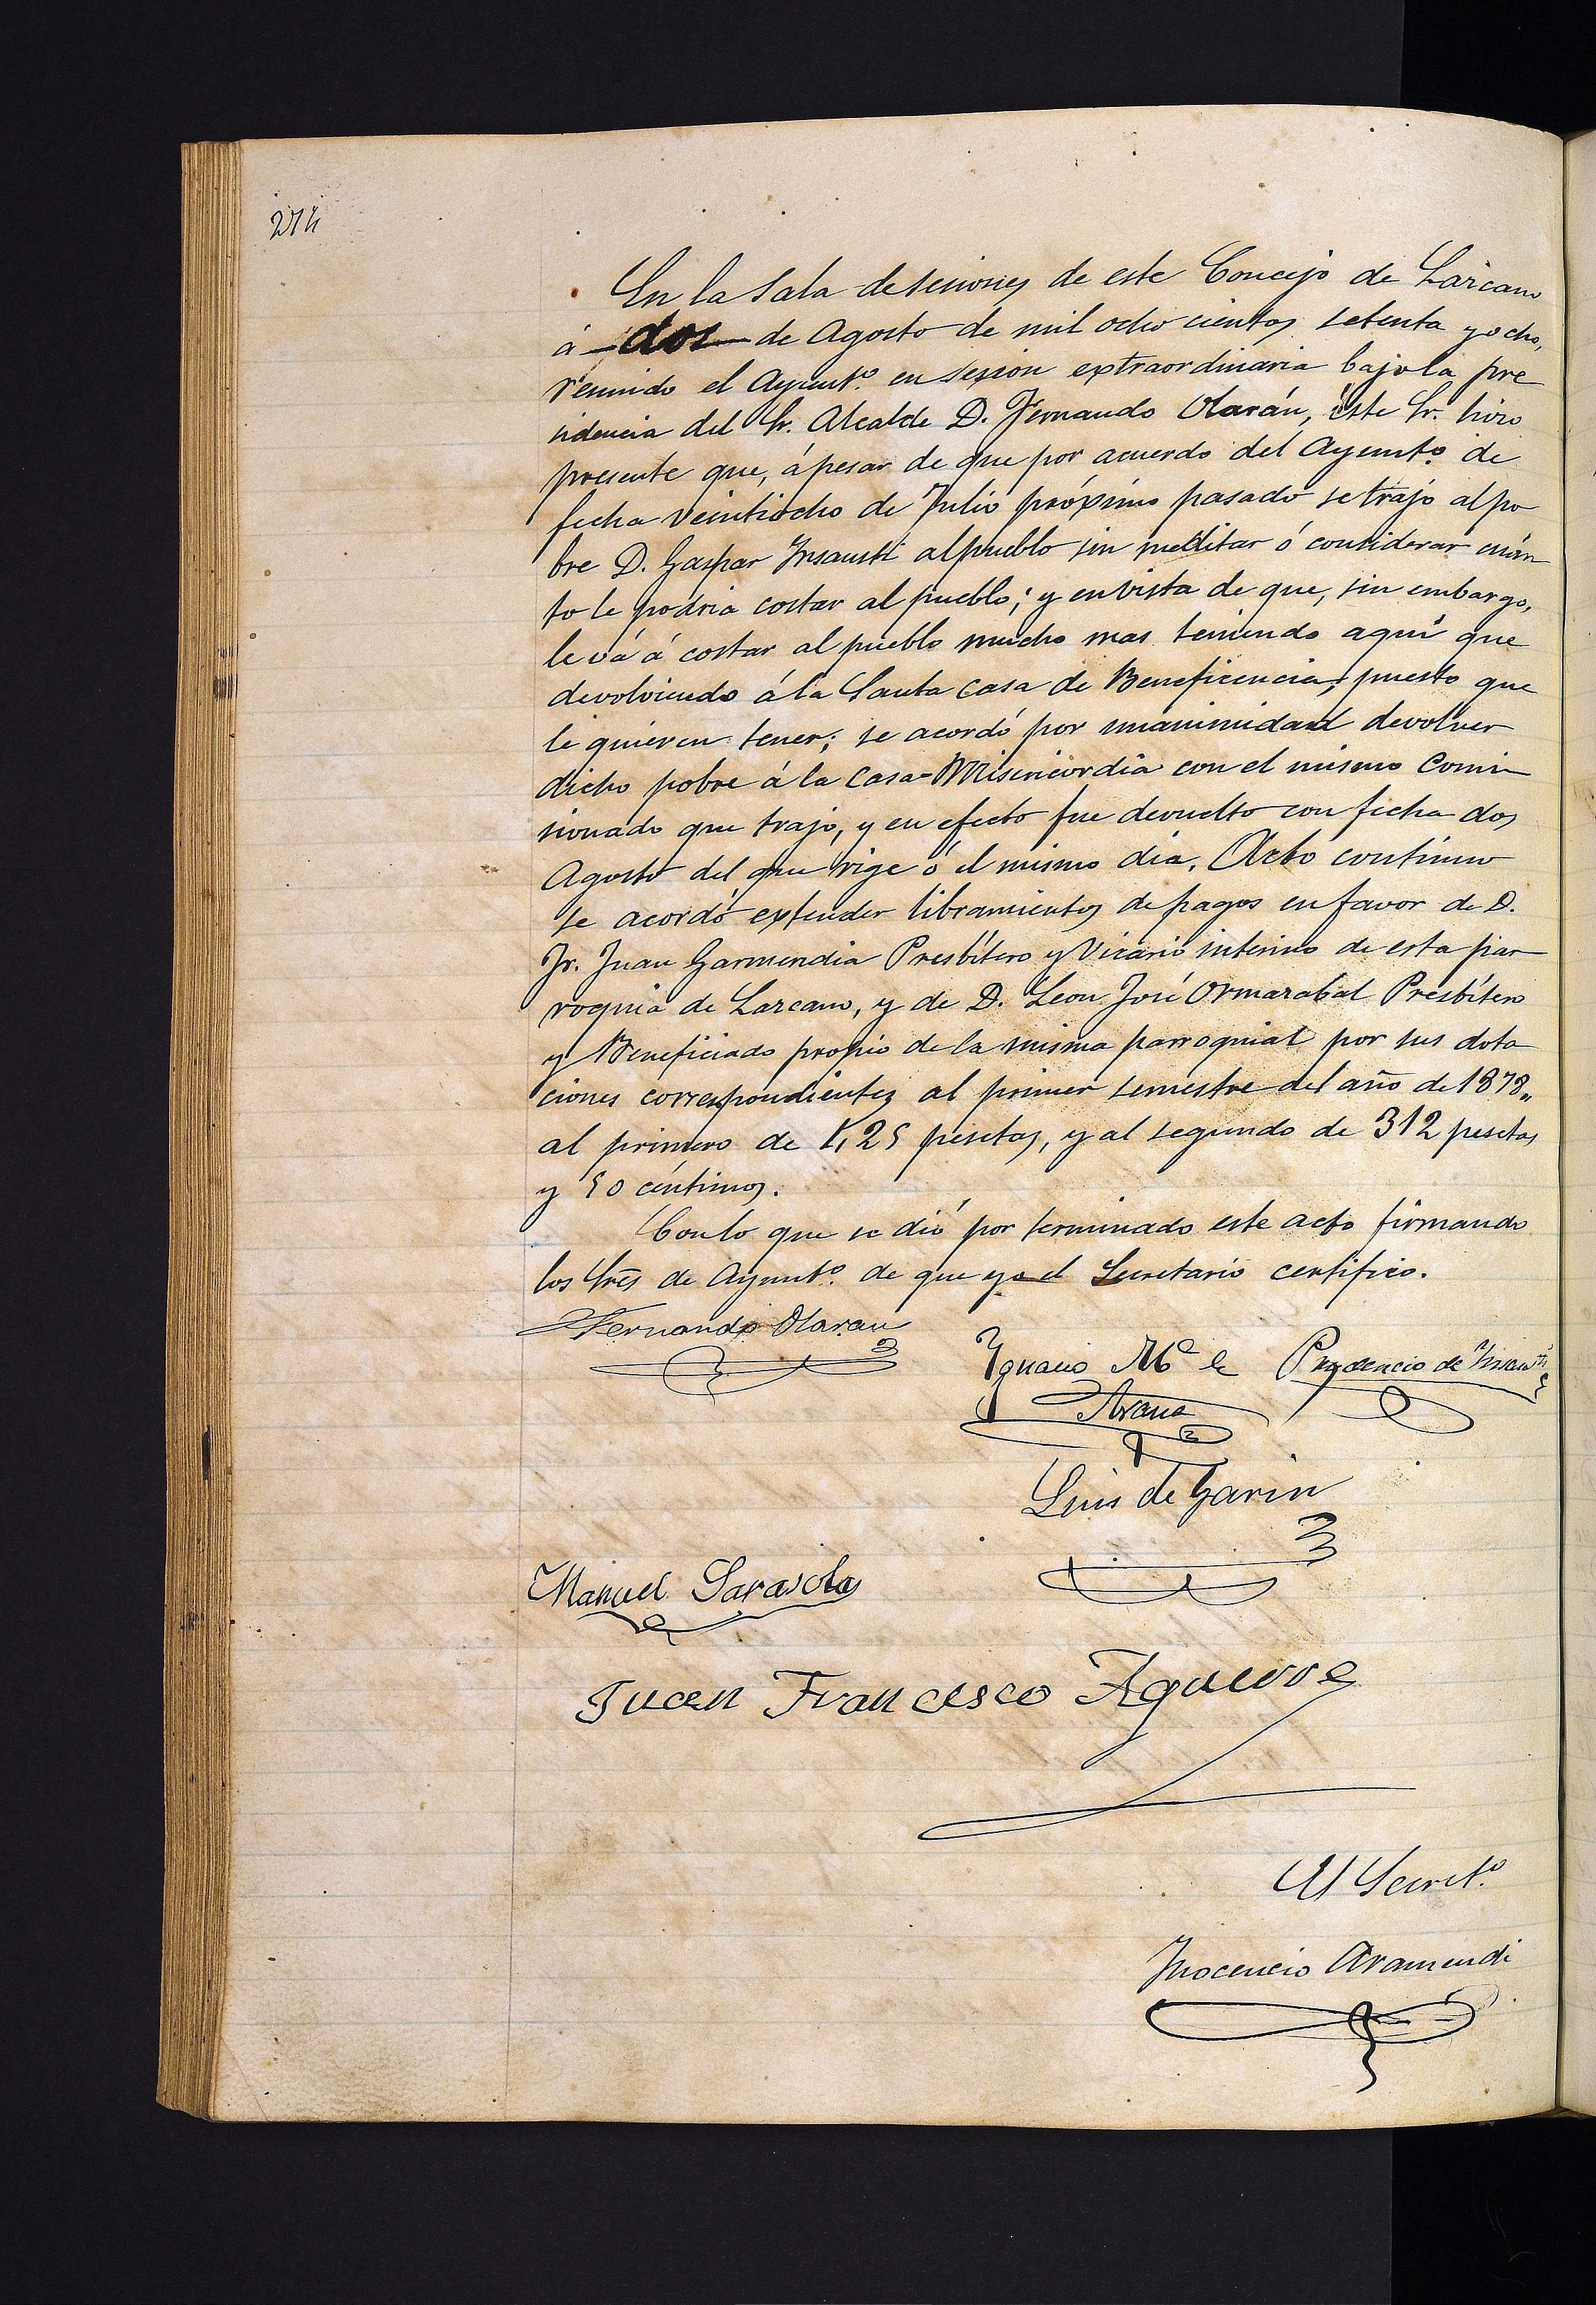 274
En la Sala de sesiones de este Concejo de Lazcano
á - dos - de Agosto de mil ocho cientos setenta y ocho,
reunido el Ayunt.º en sesion extraordinaria bajo la pre
sidencia del Sr. Alcalde D. Fernando Olarán, este Sr. hizo
presente que, á pesar de que por acuerdo del Ayunt.º de
fecha veintiocho de Julio próximo pasado se trajo al po
bre D. Gaspar Insausti al pueblo sin meditar ó considerar cuán
to le podria costar al pueblo; y en vista de que, sin embargo,
le vá á costar al pueblo mucho mas teniendo aqui que
devolviendo á la Santa casa de Beneficencia, puesto que
le quieren tener; se acordó por unanimidad devolver
dicho pobre á la Casa-Misericordia con el mismo Comi
sionado que trajo, y en efecto fue devuelto con fecha dos
Agosto del que rige ó el mismo dia. Acto continuo
se acordó extender libramientos de pagos en favor de D.
Fr. Juan Garmendia Presbítero y Vicario interino de esta par
roquia de Lazcano, y de D. Leon José Ormazabal Presbítero
y Beneficiado propio de la misma parroquial por sus dota
ciones correspondientes al primer semestre del año de 1878,,
al primero de 1,25 pesetas, y al segundo de 312 pesetas
y 50 céntimos.
Con lo que se dió por terminado este acto firmando
los Sres de Ayunt.º de que yo el Secretario certifico.
Fernando Olaran
Ignacio M.ª de Prudencio de Insausti
Arana
Luis de Garin
Manuel Sarasola
Juan Francisco Aguerre
El Secret.º
Inocencio Aramendi